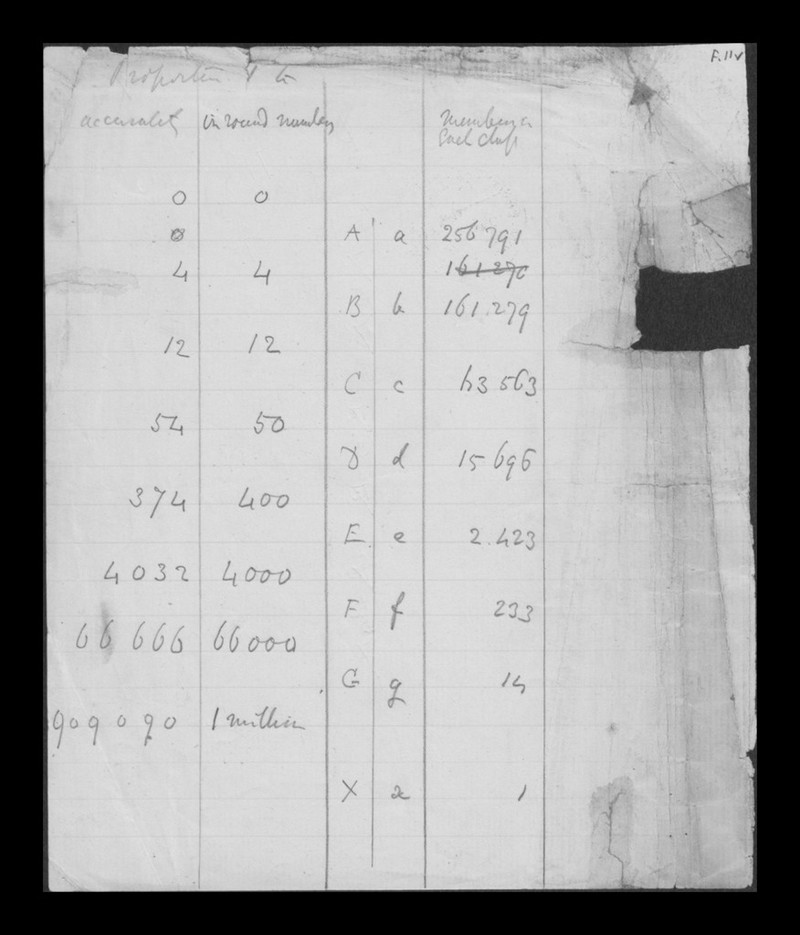 F. 11v
Proportion 1 to
accurately in round numbers Numbers in
Each class
0 0
0 A a 256 791
4 4 161 279
B b 161.279
12 12
C c 63 563
54 50
D d 15 696
374 400
E e 2.423
4032 4000
F f 233
66 666 66000
G g 14
909 090 1 million
X x 1